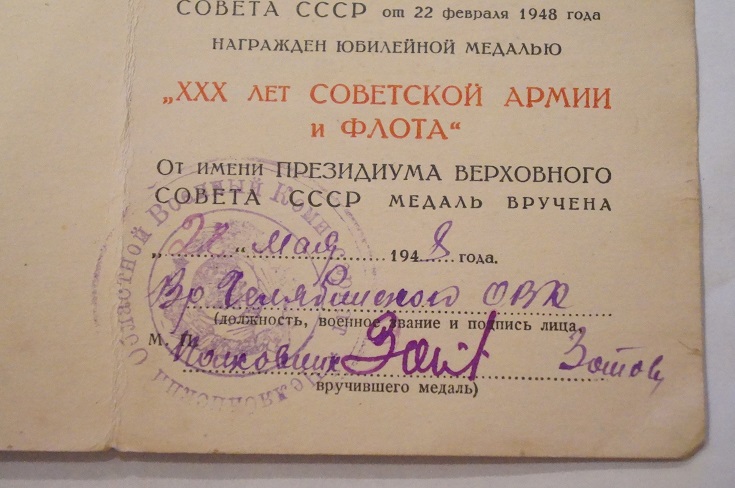 СОВЕТА СССР от 22 февраля 1948 года
НАГРАЖДЕН ЮБИЛЕЙНОЙ МЕДАЛЬЮ
„XXX ЛЕТ СОВЕТСКОЙ АРМИИ
и ФЛОТА“
От имени ПРЕЗИДИУМА ВЕРХОВНОГО
СОВЕТА СССР МЕДАЛЬ ВРУЧЕНА
мая 1948 года.
Вр Челябинского ОВК
(должность, военное звание и подпись лица,
М. П. Полковник Зотов
вручившего медаль)
Областной Военный